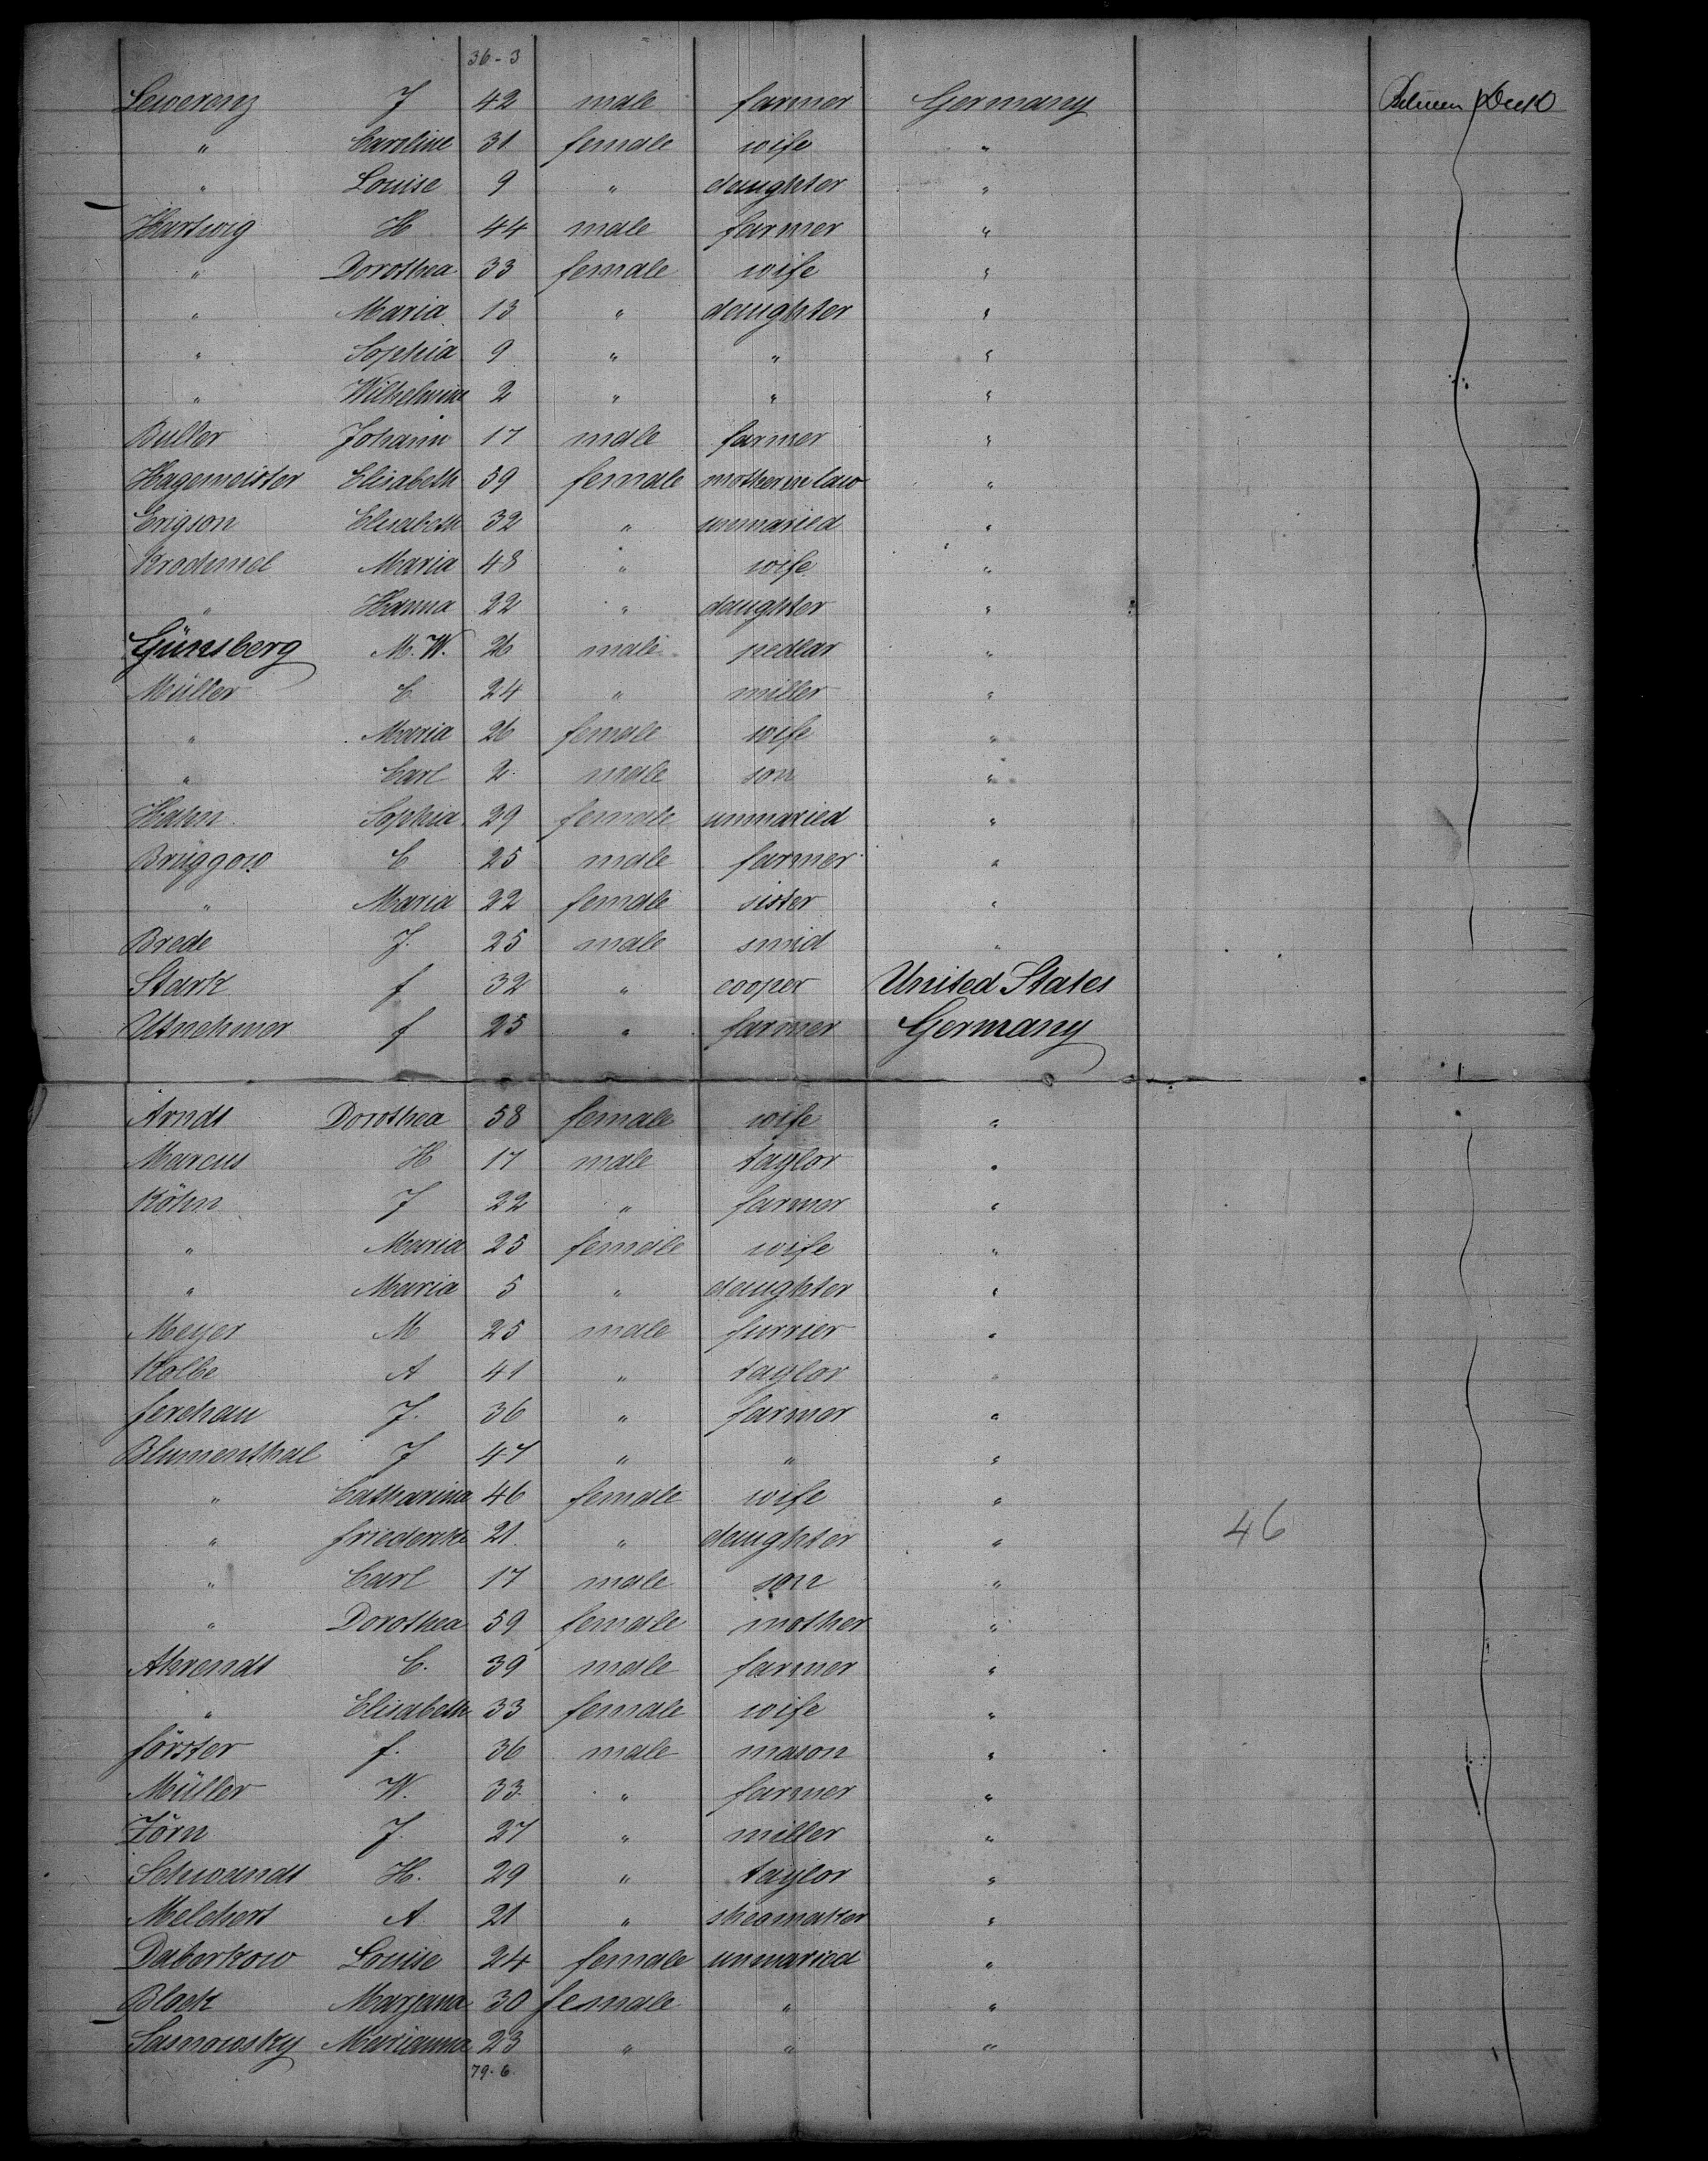 36-3
Lewerenz J 42 male farmer Germany Between Deck
" Caroline 31 female wife "
" Louise 9 " daughter "
Hartwig H 44 male farmer "
" Dorothea 33 female wife "
" Maria 13 " daughter "
" Sophia 9 " " "
" Wilhelmine 2 " " "
Buller Johann 17 male farmer "
Hagemeister Elisabeth 59 female mother in law "
Erigson Elisabeth 32 " unmaried "
Maria 48 " wife "
" Hanna 22 " daughter "
Günsberg M. W. 26 male pedlar "
Müller C 24 " miller "
" Maria 26 female wife "
" Carl 2 male son "
Hahn Sophia 29 female unmaried "
Brüggow C 25 male farmer "
" Maria 22 female sister "
Brede J. 25 male smid "
Stark f 32 " cooper United States
f 25 " farmer Germany
Arndt Dorothea 58 female wife "
Marcus H 17 male taylor "
Köhn J 22 " farmer "
" Maria 25 female wife "
" Maria 5 " daughter "
Meyer M 25 male furrier "
Kolbe A 41 " taylor "
ferchau J. 36 " farmer "
Blumenthal J 47 " " "
" Catharina 46 female wife "
" friederike 21 " daughter " 46
" Carl 17 male son "
" Dorothea 59 female mother "
Ahrendt C. 39 male farmer "
" Elisabeth 33 female wife "
förster f. 36 male mason "
Müller W. 33 " farmer "
Zörn J. 27 " miller "
Schwandt H. 29 " taylor "
Melchert A 21 " sheomaker "
Daberkow Louise 24 female unmaried "
Block Marjana 30 female " "
Sasnowsky Marianna 23 " " "
79-6